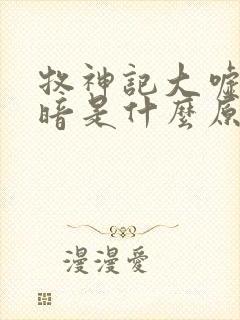 牧神記大噓
暗是什麼原
漫漫愛